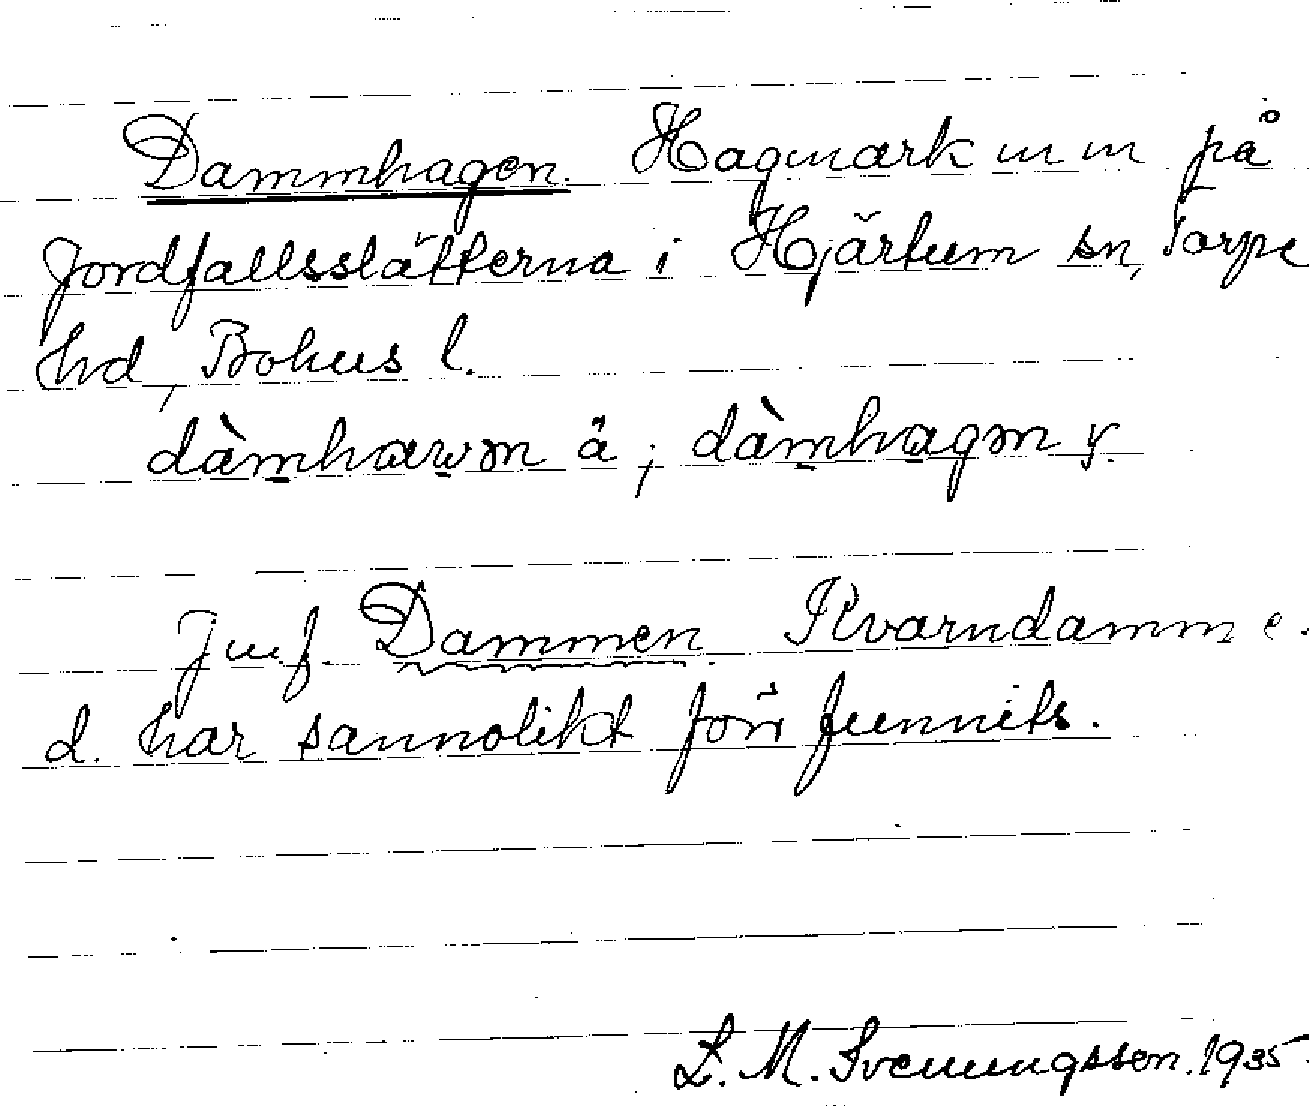 Dammhagen. Hagmark m m på
Jordfallsslätterna i Hjärtum sn, Torpe
hd, Bohus l.
dàmhawm ä; dàmhagm y.
Jmf. Dammen. Kvarndamm e.
d. har sannolikt förr funnits.
S. M. Svenungsson. 1935.